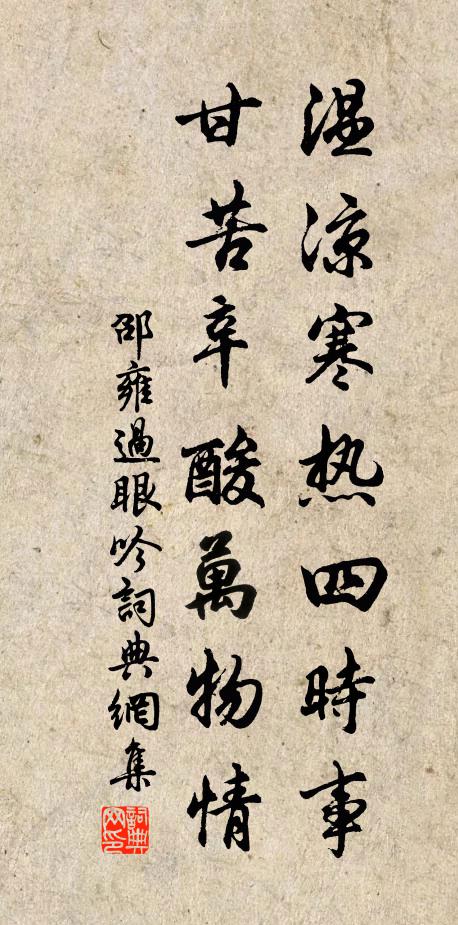 温凉寒热四時事
甘苦辛酸萬物情
邵雍過眼吟詞典網集
詞典网印